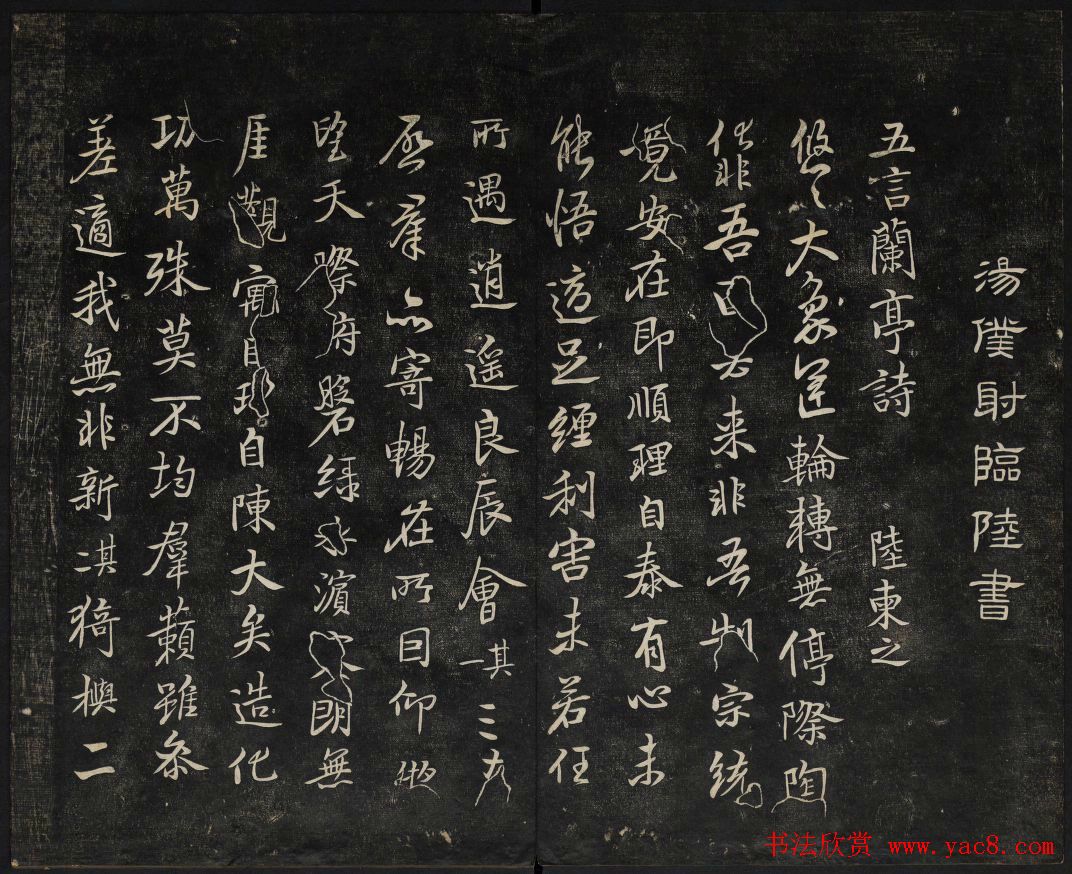 湯僕射臨陸書
五言蘭亭詩 陸東之
悠〻大象運輪轉無停際陶
化非吾因去来非吾制宗統
竟安在即順理自泰有心未
能悟適足纏利害未若任
所遇逍遥良辰會其一三春
啓羣品寄暢在所因仰
望天際俯磐緑水濱寥朗無
厓觀寓目理自陳大矣造化
功萬殊莫不均羣籟雖参
差適我無非新其二猗與二
书法欣赏 www.yac8.com